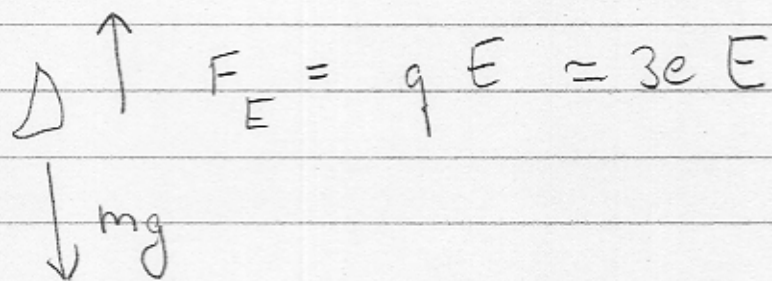 F_E = q E ≃ 3e E
mg